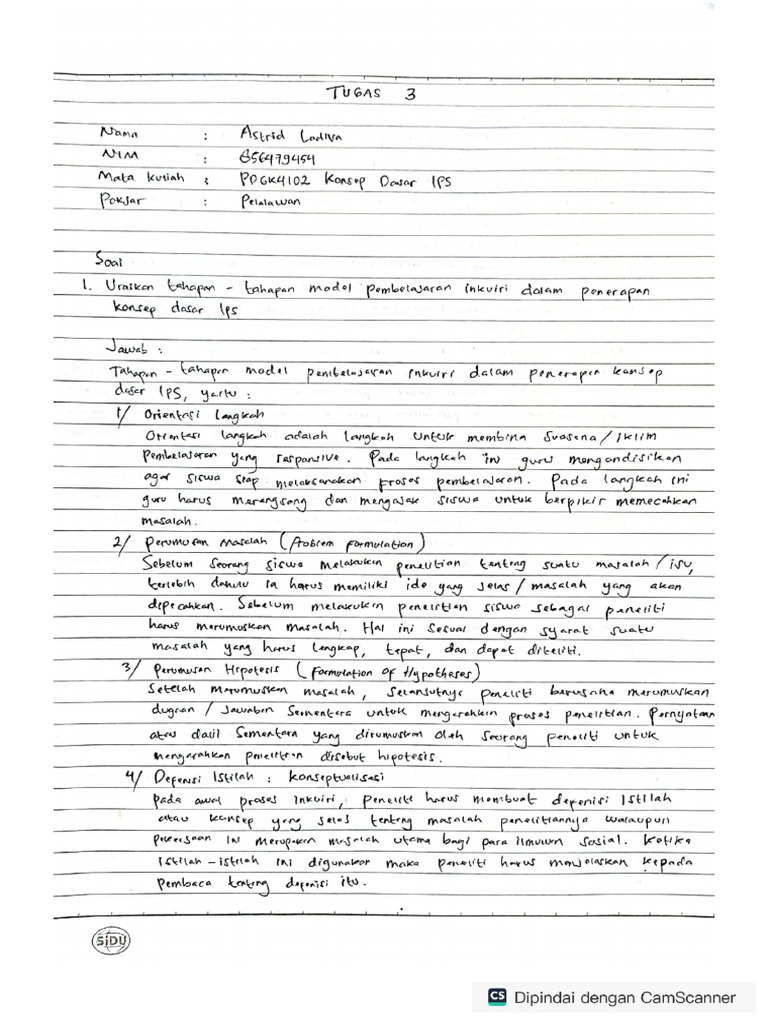 TUGAS 3
Nama : Astrid Ladiva
NIM : 856479454
Mata kuliah : PDGK4102 Konsep Dasar IPS
Pokjar : Pelalawan
Soal
1. Uraikan tahapan - tahapan model pembelajaran inkuiri dalam penerapan
konsep dasar IPS
Jawab :
Tahapan - tahapan model pembelajaran inkuiri dalam penerapan konsep
dasar IPS, yaitu :
1/ Orientasi langkah
Orientasi langkah adalah langkah untuk membina suasana / iklim
pembelajaran yang responsive. Pada langkah ini guru mengondisikan
agar siswa siap melaksanakan proses pembelajaran. Pada langkah ini
guru harus merangsang dan mengajak siswa untuk berpikir memecahkan
masalah.
2/ Perumusan Masalah (Problem Formulation)
Sebelum seorang siswa melakukan penelitian tentang suatu masalah / isu,
terlebih dahulu ia harus memiliki ide yang jelas / masalah yang akan
dipecahkan. Sebelum melakukan penelitian siswa sebagai peneliti
harus merumuskan masalah. Hal ini sesuai dengan syarat suatu
masalah yang harus lengkap, tepat, dan dapat diteliti.
3/ Perumusan Hipotesis (Formulation of Hypotheses)
Setelah merumuskan masalah, selanjutnya peneliti berusaha merumuskan
dugaan / jawaban sementara untuk mengarahkan proses penelitian. Pernyataan
atau dalil sementara yang dirumuskan oleh seorang peneliti untuk
mengarahkan penelitian disebut hipotesis.
4/ Depenisi Istilah : konseptualisasi
pada awal proses inkuiri, peneliti harus membuat depenisi istilah
atau konsep yang jelas tentang masalah penelitiannya walaupun
pekerjaan ini merupakan masalah utama bagi para ilmuwan sosial. Ketika
istilah - istilah ini digunakan maka peneliti harus menjelaskan kepada
pembaca tentang depenisi itu.
SiDU
CS Dipindai dengan CamScanner